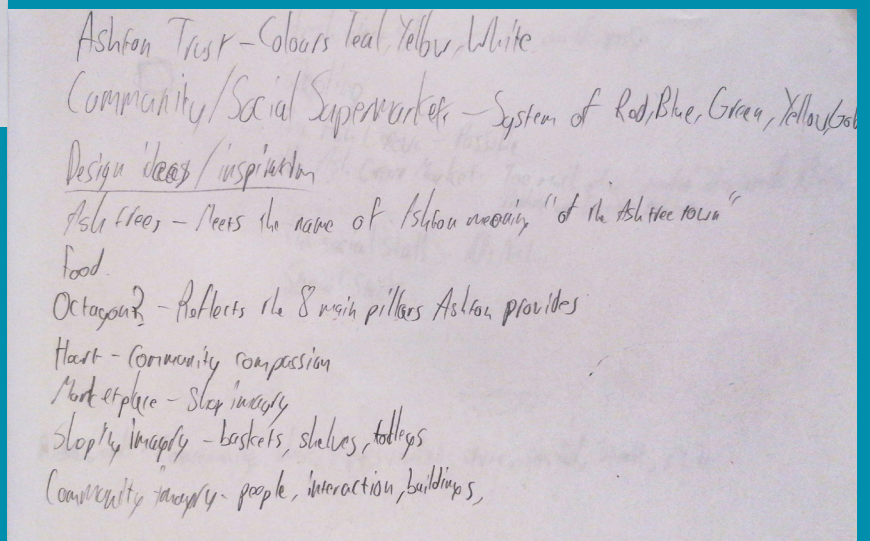 Ashton Trust - Colours Teal, Yellow, White
Community/Social Supermarket, - System of Red, Blue, Green, Yellow, Gol
Design ideas/inspiration
Ash trees - Meets the name of Ashton meaning "of the Ash tree town"
Food.
Octagon? - Reflects the 8 main pillars Ashton provides
Heart - Community compassion
Marketplace - Shop imagry
Shop imagry - baskets, shelves, trolleys
Community imagry - people, interaction, buildings,